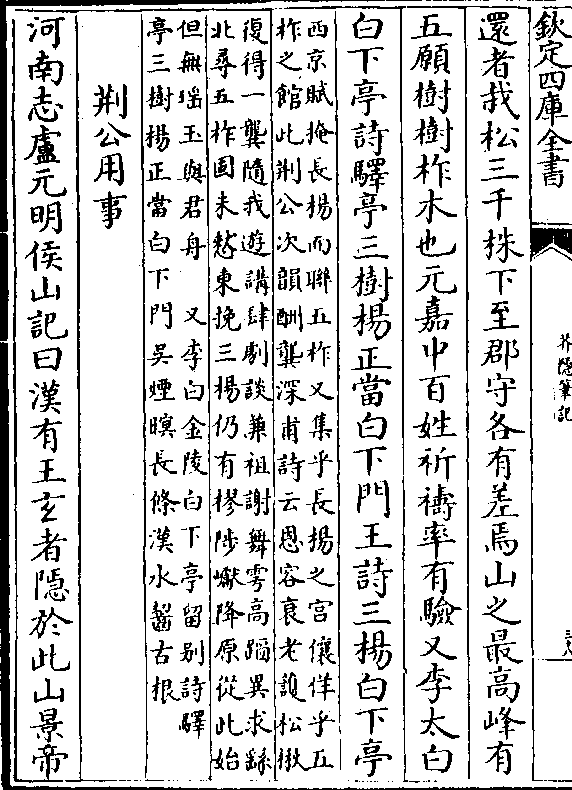 欽定四庫全書
芥隱筆記
還者栽松三千株下至郡守各有差焉山之最高峰有
五願樹樹柞木也元嘉中百姓祈禱率有驗又李太白
白下亭詩驛亭三樹楊正當白下門王詩三楊白下亭
西京賦掩長楊而聯五柞又集乎長楊之宫儴佯乎五
柞之館此荆公次韻酬龔深甫詩云恩容衰老護松楸
復得一龔隨我遊講肆劇談兼祖謝舞雩高蹈異求繇
北尋五柞固未憖東挽三楊仍有樛陟巘降原從此始
但無瑶玉與君舟　又李白金陵白下亭留别詩驛
亭三樹楊正當白下門吳煙暝長條漢水齧古根
荆公用事
河南志盧元明侯山記曰漢有王玄者隱於此山景帝